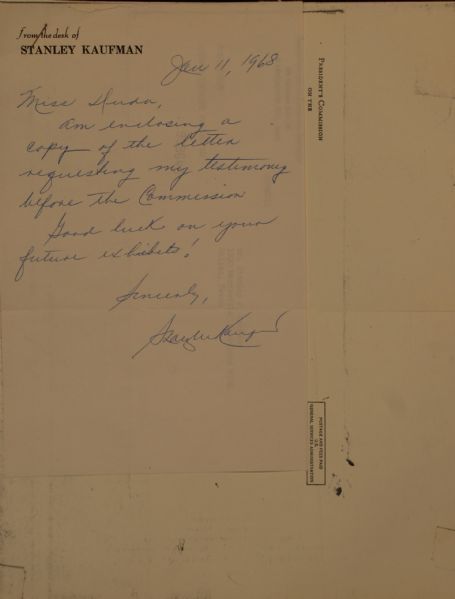 From the desk of
STANLEY KAUFMAN
Jan 11, 1968
Miss
Am enclosing a
copy of the letter
requesting my testimony
before the Commission
Good luck on your
future exhibits!
Sincerely,
Stanley Kaufman
PRESIDENT'S COMMISSION
ON THE
POSTAGE AND FEES PAID
U.S.
GENERAL SERVICES ADMINISTRATION